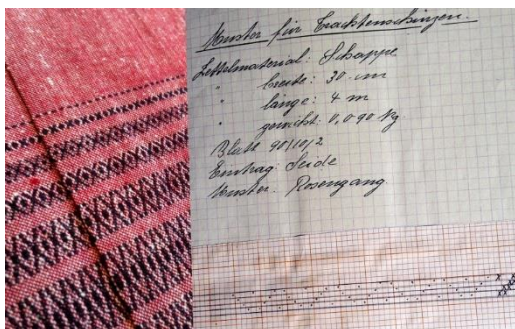 Muster für Trachtenschürzen.
Zettelmaterial: Schappe
" breite: 30 cm
" länge: 4 m
" gewicht: 0,090 kg
Blatt 90/10/2
Eintrag: Seide
Muster: Rosengang.